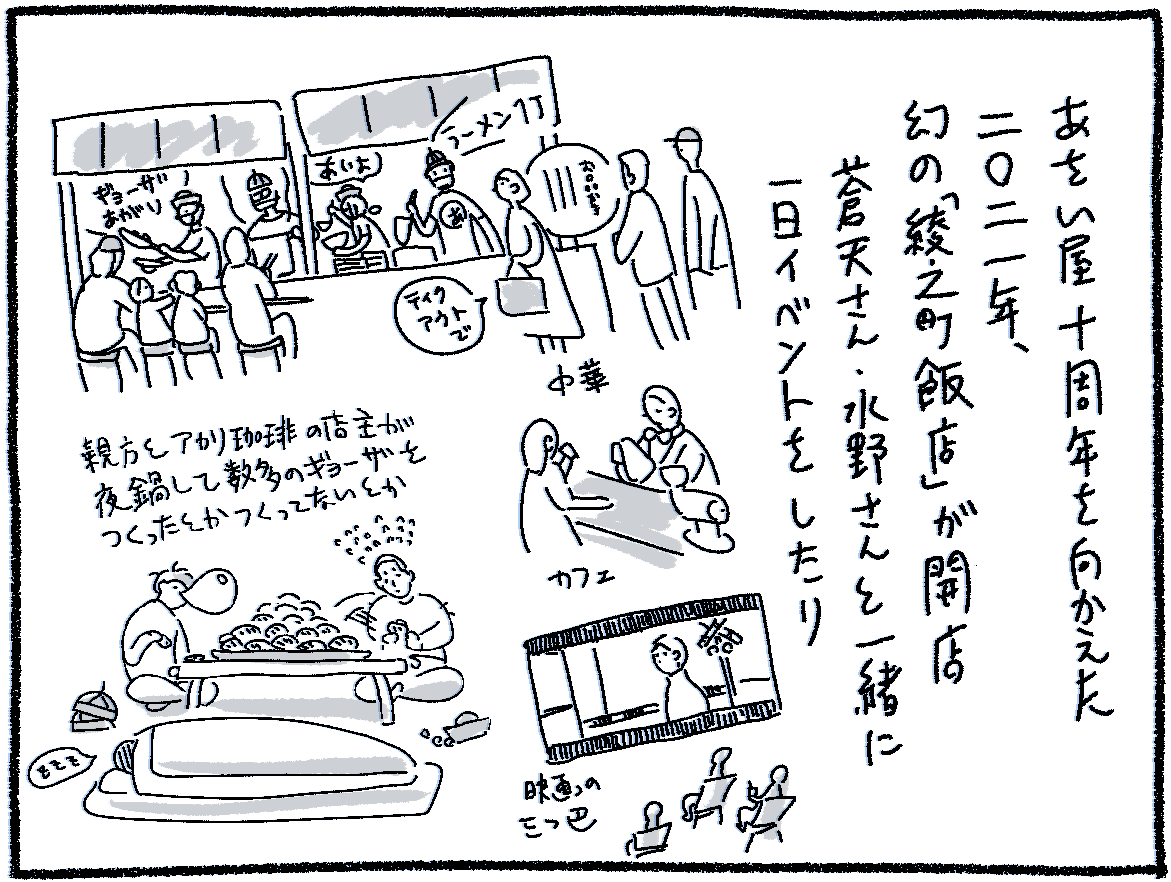 あをい屋十周年を向かえた
二〇二一年、
幻の「綾之町飯店」が開店
蒼天さん・水野さんと一緒に
一日イベントをしたり
ラーメン1丁
あいよ
ギョーザ
あがり
あ
テイク
アウトで
中華
親方とアカリ珈琲の店主が
夜鍋して数多のギョーザを
つくったとかつくってないとか
zzz
カフェ
映画の
三つ巴